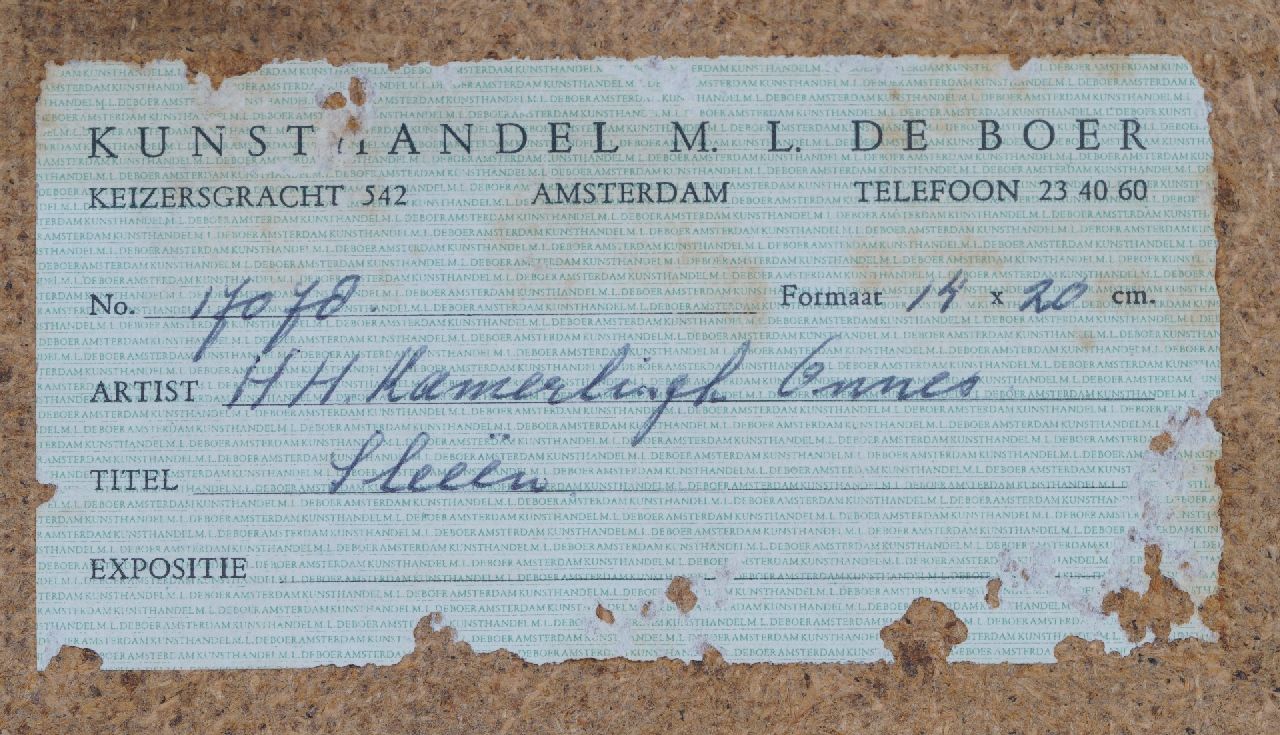 KUNSTHANDEL M. L. DE BOER
KEIZERSGRACHT 542 AMSTERDAM TELEFOON 23 40 60
No. 17078. Formaat 14 x 20 cm.
ARTIST H H. Kamerlingh Onnes
TITEL Sleeën
EXPOSITIE